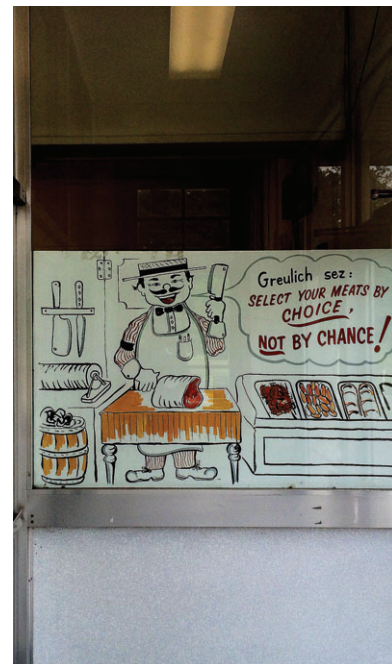 Greulich sez:
SELECT YOUR MEATS BY
CHOICE,
NOT BY CHANCE!